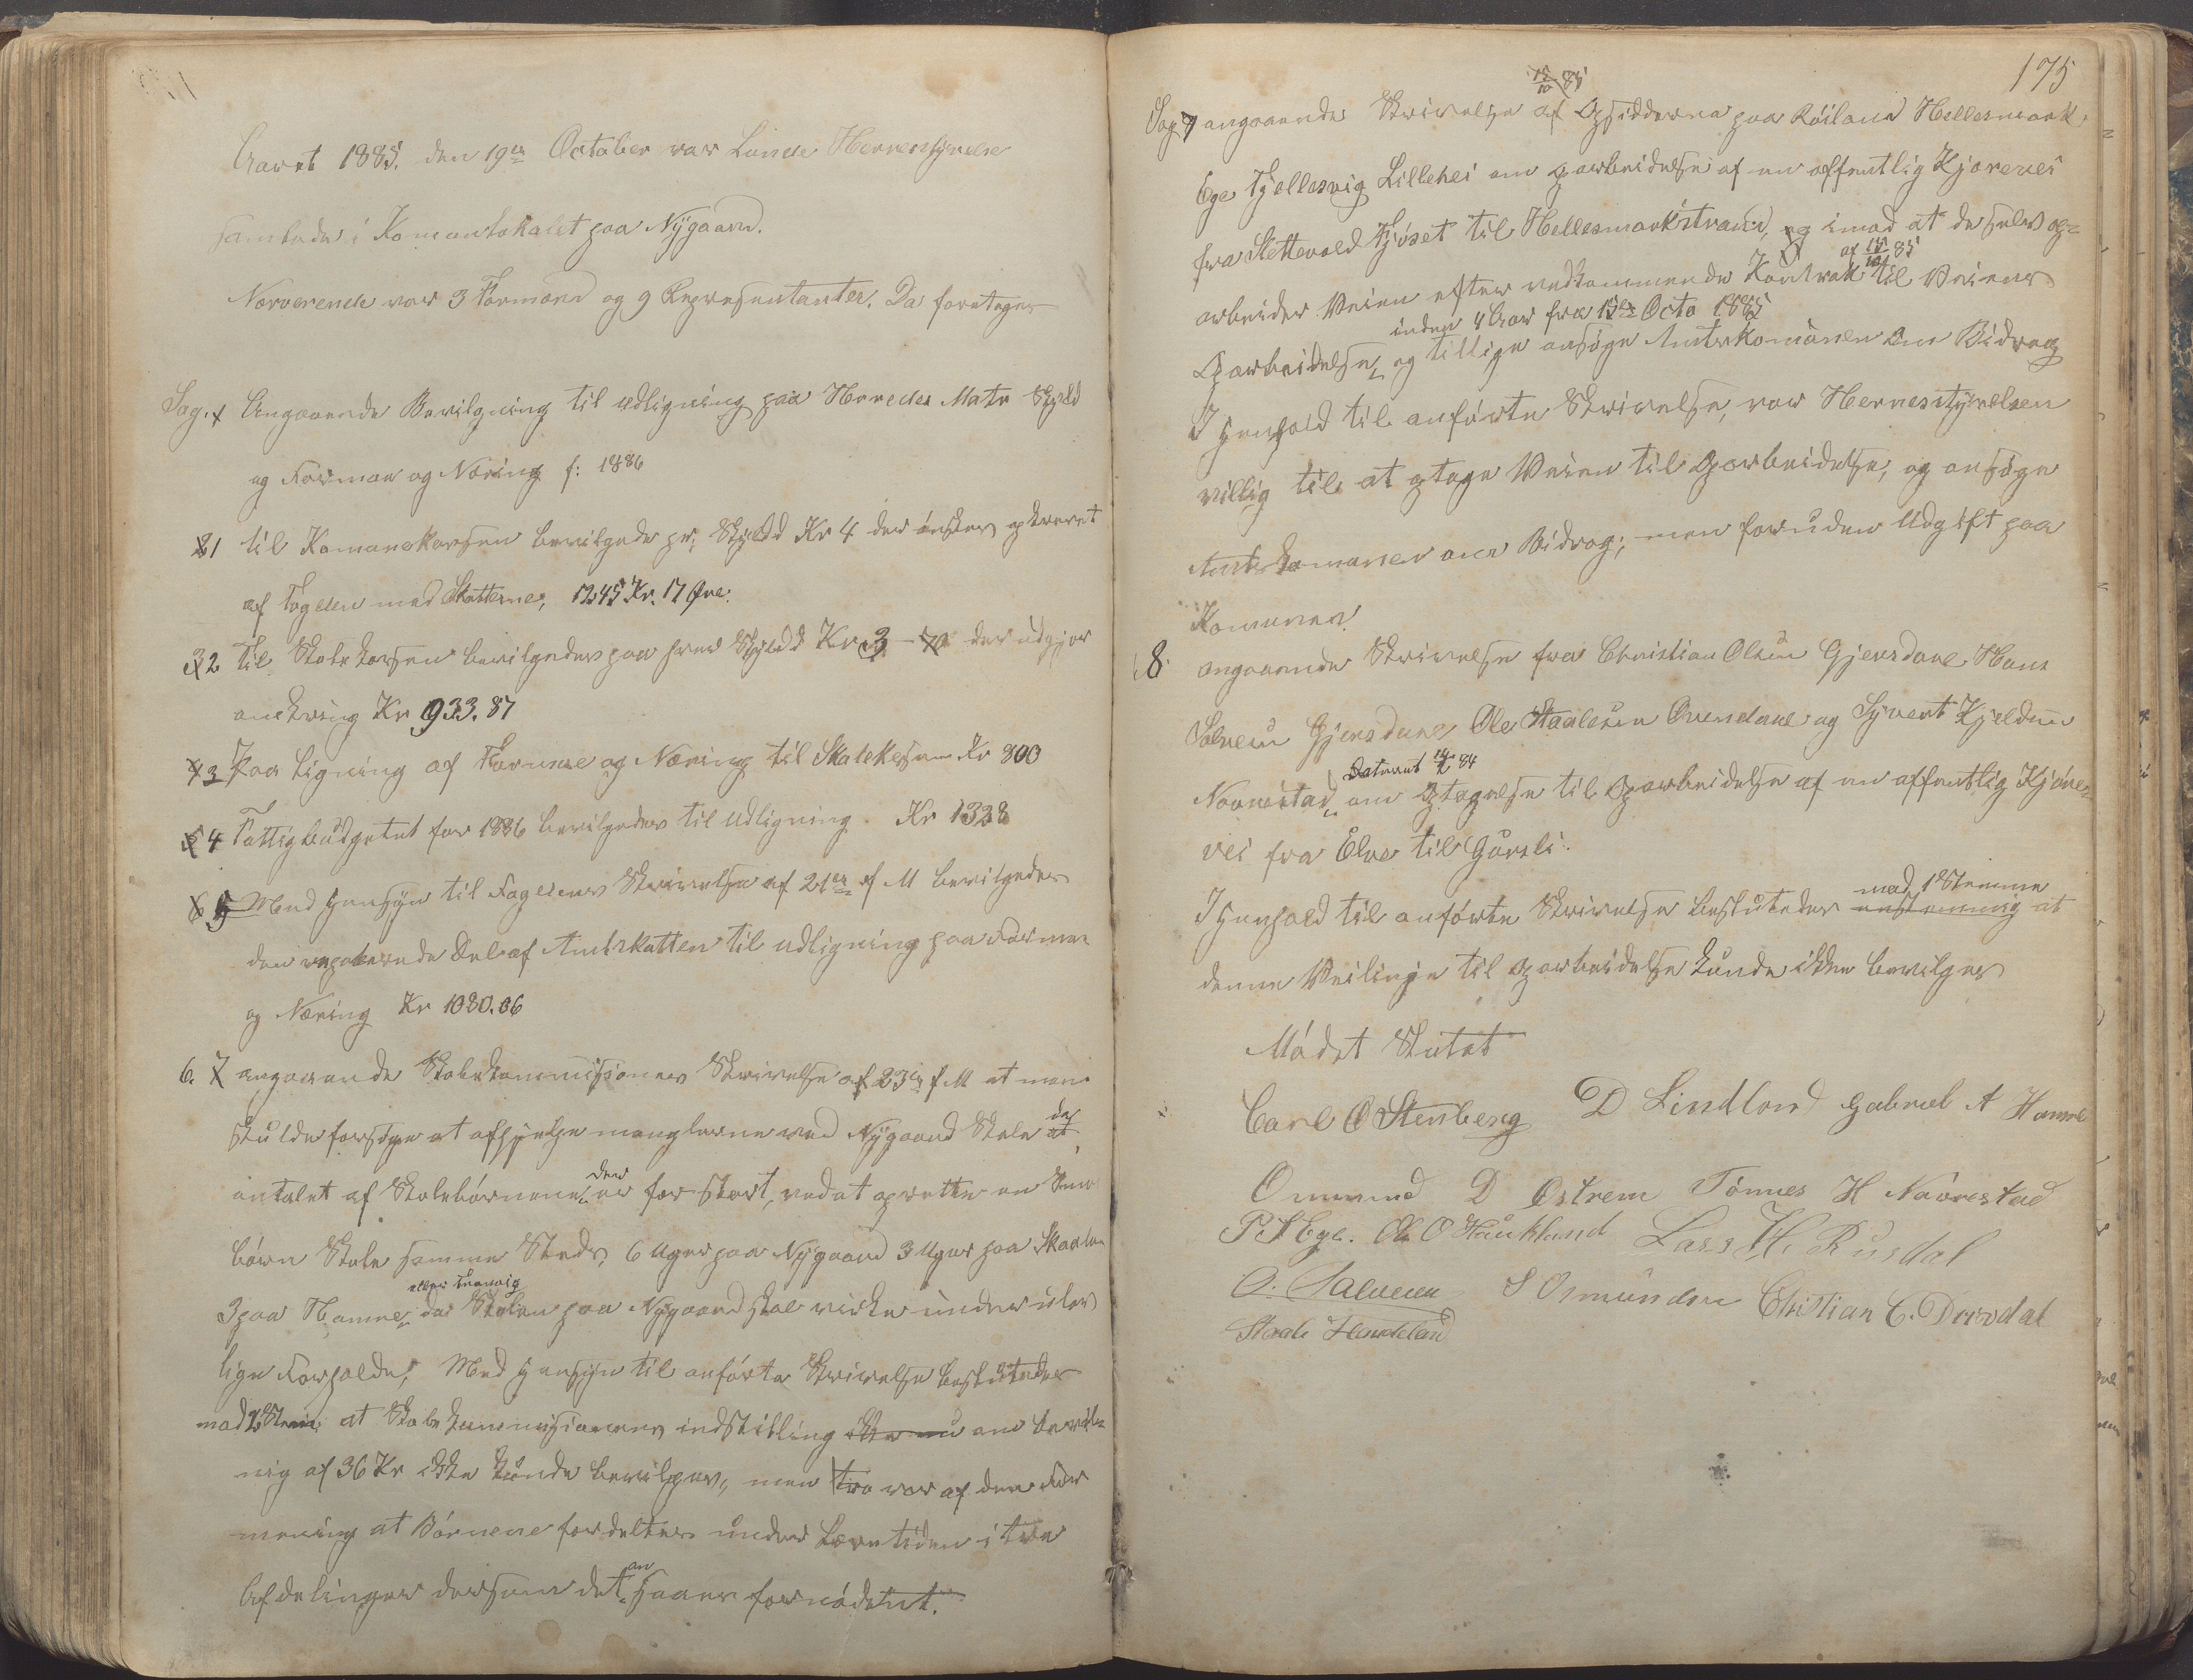 Aaret 1885. den 19de October var Lunde Herredsstyrelse
samlede i Komunelokalet paa Nÿgaard.
Nærverende var 3 Formænd og 9 Representanter. Da foretoges
Sag. 1 Angaaende Bevilgning til udligning paa Heredes Matr Skyld
og Formue og Næring f: 1886
1 til Komunekassen bevilgedes pr: Skyldd Kr 4 der ønskes opkrevet
af Fogden med Skatterne, 1245 Kr. 17 Øre.
2 Til Skolekassen bevilgedes paa hver Skyldd Kr 3 – der udgjør
omkring Kr 933.87
3 Paa Ligning af Formue og Næring til Skolekassen Kr 800
4 Fattigbudgetet for 1886 bevilgedes til udligning. Kr 1328
5 Med Hensyn til Fogdens Skrivelse af 21de f M bevilgedes
den reparterede Del af Amtskatten til udligning paa Formue
og Næring Kr 1080.06
6. 7 angaaende Skolekommissionens Skrivelse af 23de f. M at man
skulde forsøge at afhjelpe manglerne ved Nÿgaard Skole at da
antalet af Skolebørnene der er for stort, ved at oprette en Smaa
børn Skole samme Steds, 6 Uger paa Nÿgaard 3 Uger paa Skaaland
3 paa Hamre, eller Tronvig da Skolen paa Nÿgaard skal virke under ulov
lige Forholde, Med Hensyn til anførte Skrivelse besluttedes
mod 2 Stem: at Skolekommissionens indstilling ikke om bevil-
nig af 36 Kr ikke kunde bevilges, men var af den For
mening at Børnene fordeltes under Læretiden i tre
Afdelinger dersom det an saaes fornødent.
175
15/10 85
Sag 7 angaaende Skrivelse af Opsidderne paa Røiland Hellesmark
Ege Fjellesvig Lillehei om oparbeidelse af en offentlig Kjørevei
fra Slettevold Fjøset til Hellesmarkstrand, og imod at de selv op-
af 15/10 85
arbeider Veien efter vedkommende Kontrakt til Veiens
inden 4 Aar fra 15de Octo 1885
Oparbeidelse, og tillige ansøge Amtskomunen om Bidrag
I Henhold til anførte Skrivelse, var Herredsstÿrelsen
villig til at optage Veien til Oparbeidelse, og ansøge
Amtskomunen om Bidrag; men foruden Udgift paa
Komunen.
8. angaaende Skrivelse fra Christian Olsen Gjersdael Hans
Salvesen Gjersdael Ole Staalesen Ovendael og Syvert Kjeldsen
Dateret 84
Navrestad, om Optagelse til Oparbeidelse af en offentlig Kjøre-
vei fra Elve til Gursli.
I Henhold til anførte Skrivelse besluttedes enstemmig at
mod 1 Stemme
denne Veilinje til Oparbeidelse kunde ikke bevilges
Mødet Slutet
Carl O Stenberg D Lindland Gabriel A Hamre
Ommund D Østrem Tønnes H Navrestad
P. S Ege. Ole O Haukland Lars H. Rusdal
O. Salvesen S Omundsen Christian C. Drivdal
Staale Haukland